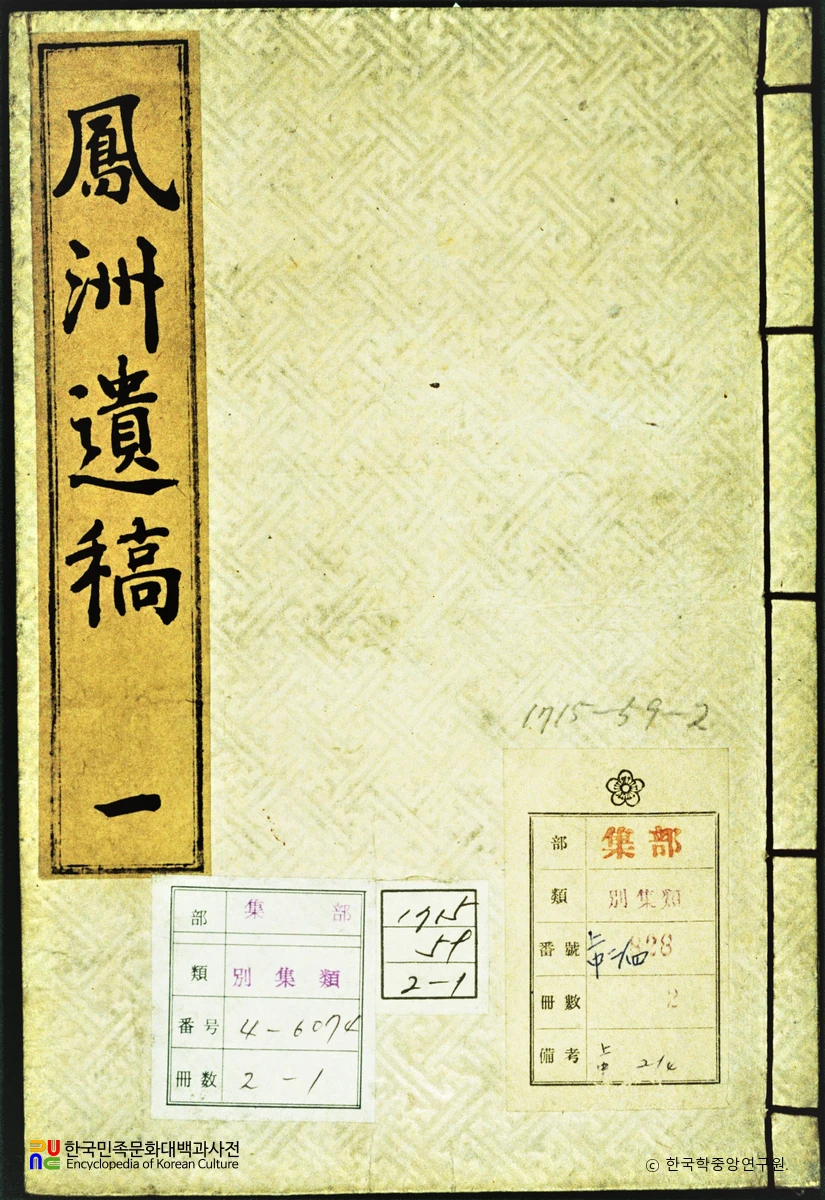 鳳洲遺稿 一
1715-59-2
部 集部
類 別集類
番號 828
冊數 2
備考
部 集部
類 別集類
番号 4-6074
冊数 2-1
1715
59
2-1
한국민족문화대백과사전
Encyclopedia of Korean Culture
© 한국학중앙연구원.